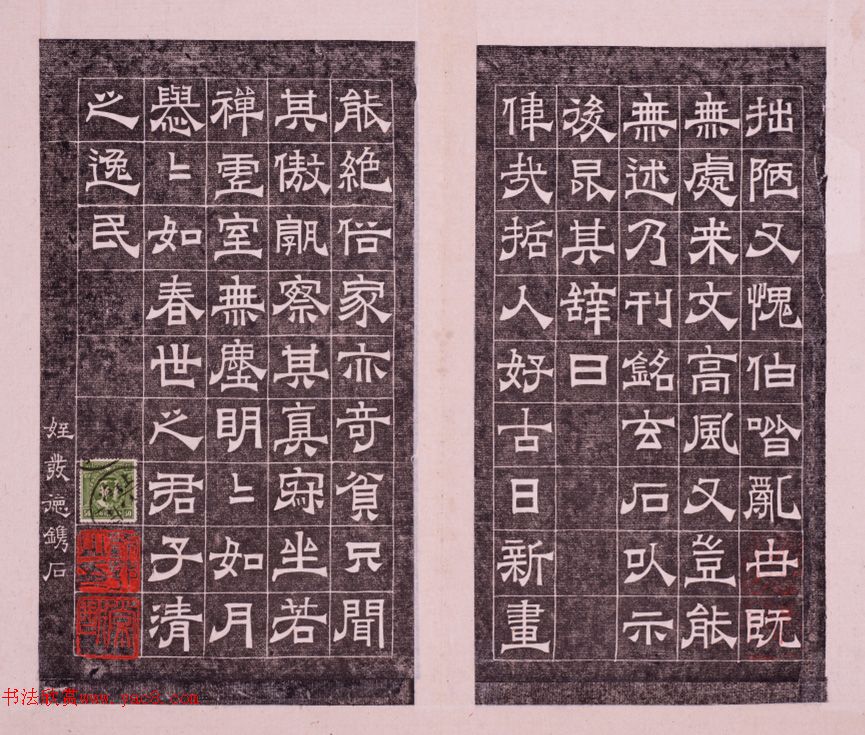 拙陋又愧伯喈亂世既
無處来文高風又豈能
無述乃刊銘玄石以示
後昆其辞曰
偉哉哲人好古日新畫
能絶俗家亦奇貧只聞
其傲孰察其真寂坐若
禪虛室無塵明〻如月
懙〻如春世之君子清
之逸民
姪發德鐫石
书法欣赏www.yac8.com